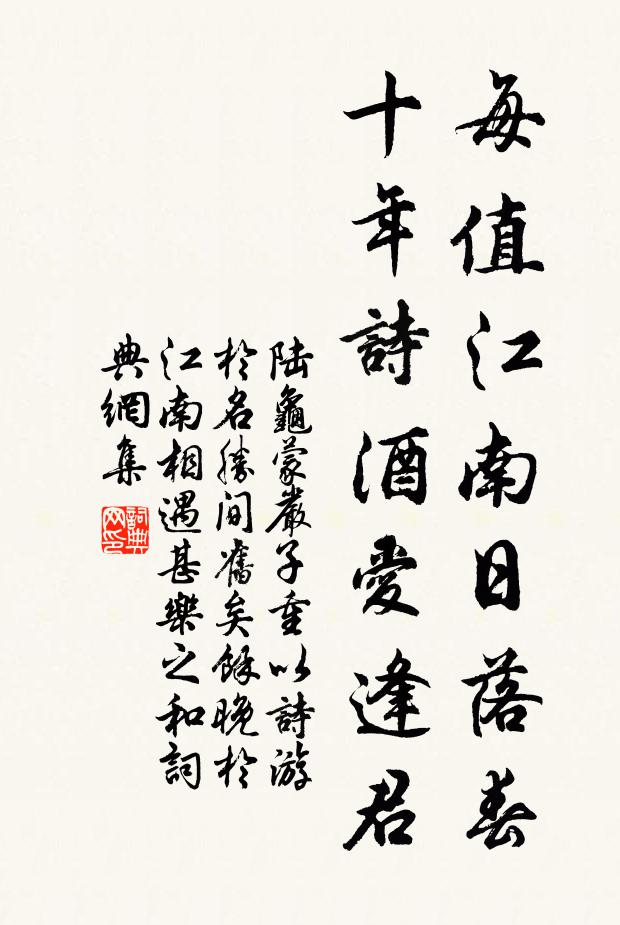 每值江南日落春
十年詩酒愛逢君
陆龜蒙嚴子重以詩游
於名勝间舊矣餘晚於
江南相遇甚樂之和詞
典網集
詞典网印